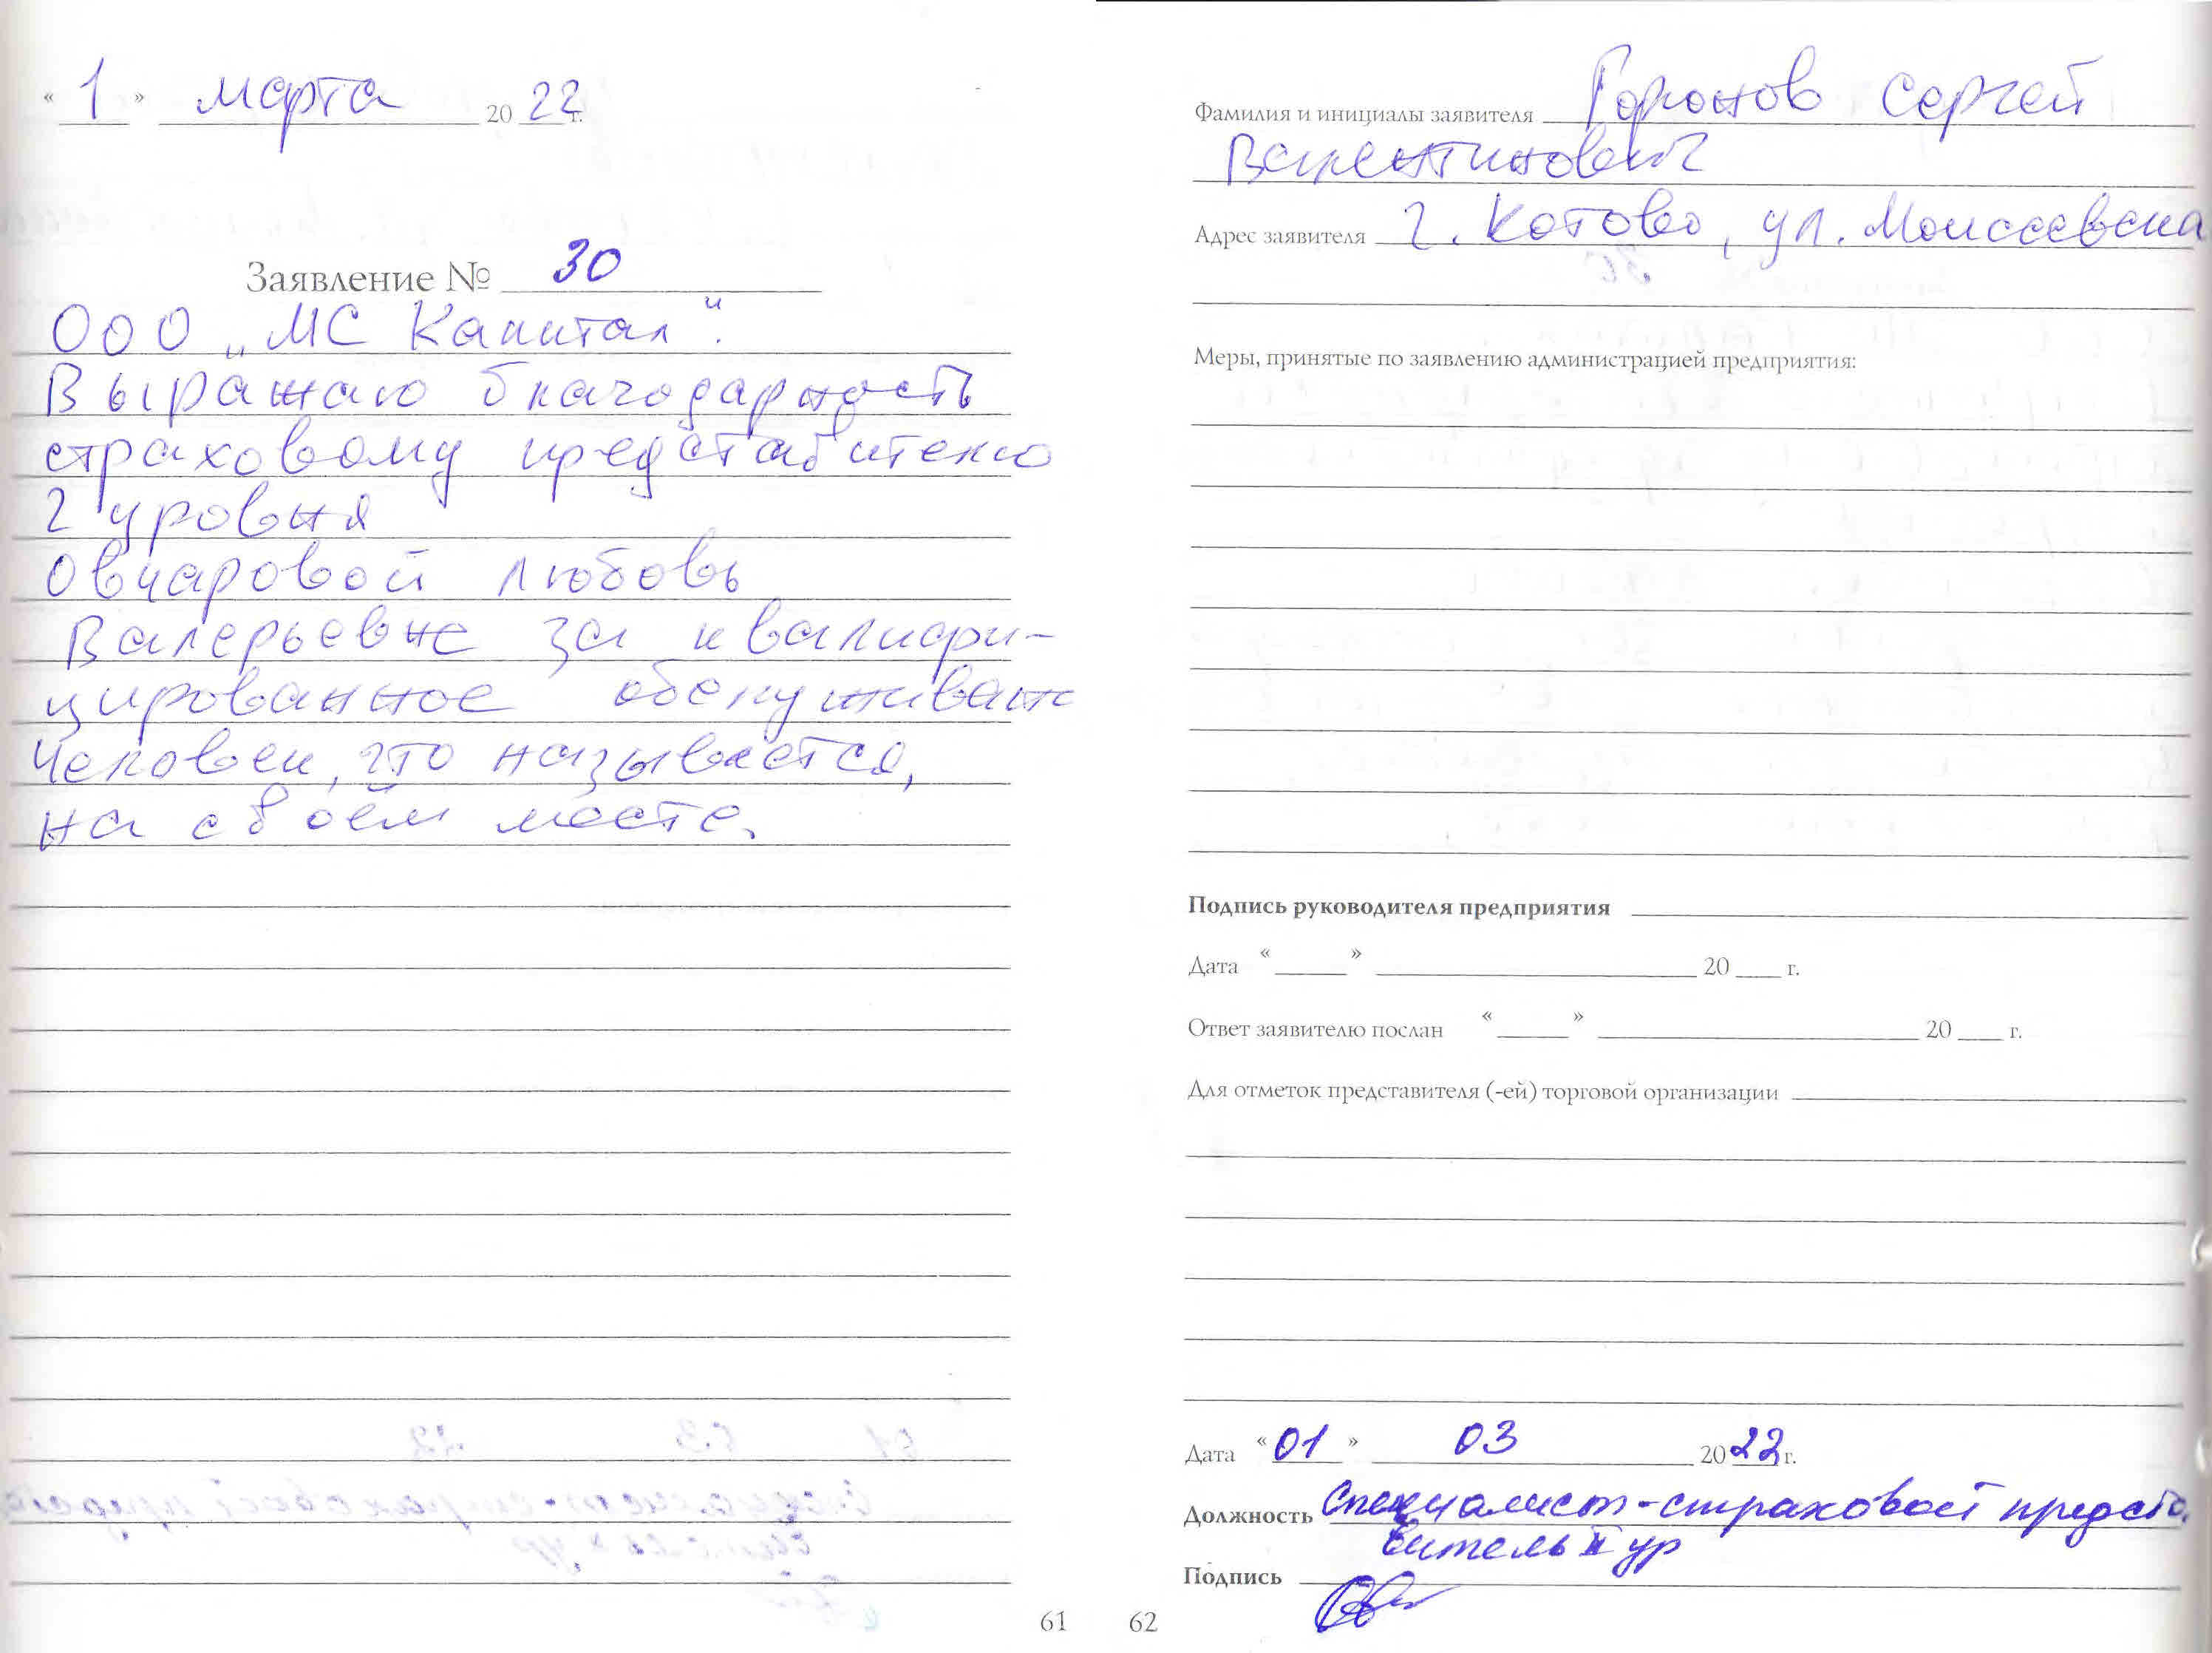 « 1 » марта 20 22 г.
Заявление № 30
ООО „МС Капитал".
Выражаю благодарность
страховому представителю
2 уровня
Овчаровой Любовь
Валерьевне за квалифи-
цированное обслуживан
Человек, что называется,
на своём месте.
61
Фамилия и инициалы заявителя Горонов Сергей
Валентинович
Адрес заявителя г. Котово, ул. Моисеевска
Меры, принятые по заявлению администрацией предприятия:
Подпись руководителя предприятия
Дата « » 20 г.
Ответ заявителю послан « » 20 г.
Для отметок представителя (-ей) торговой организации
Дата « 01 » 03 20 22 г.
Должность Специалист-страховой предста
витель II ур
Подпись
62